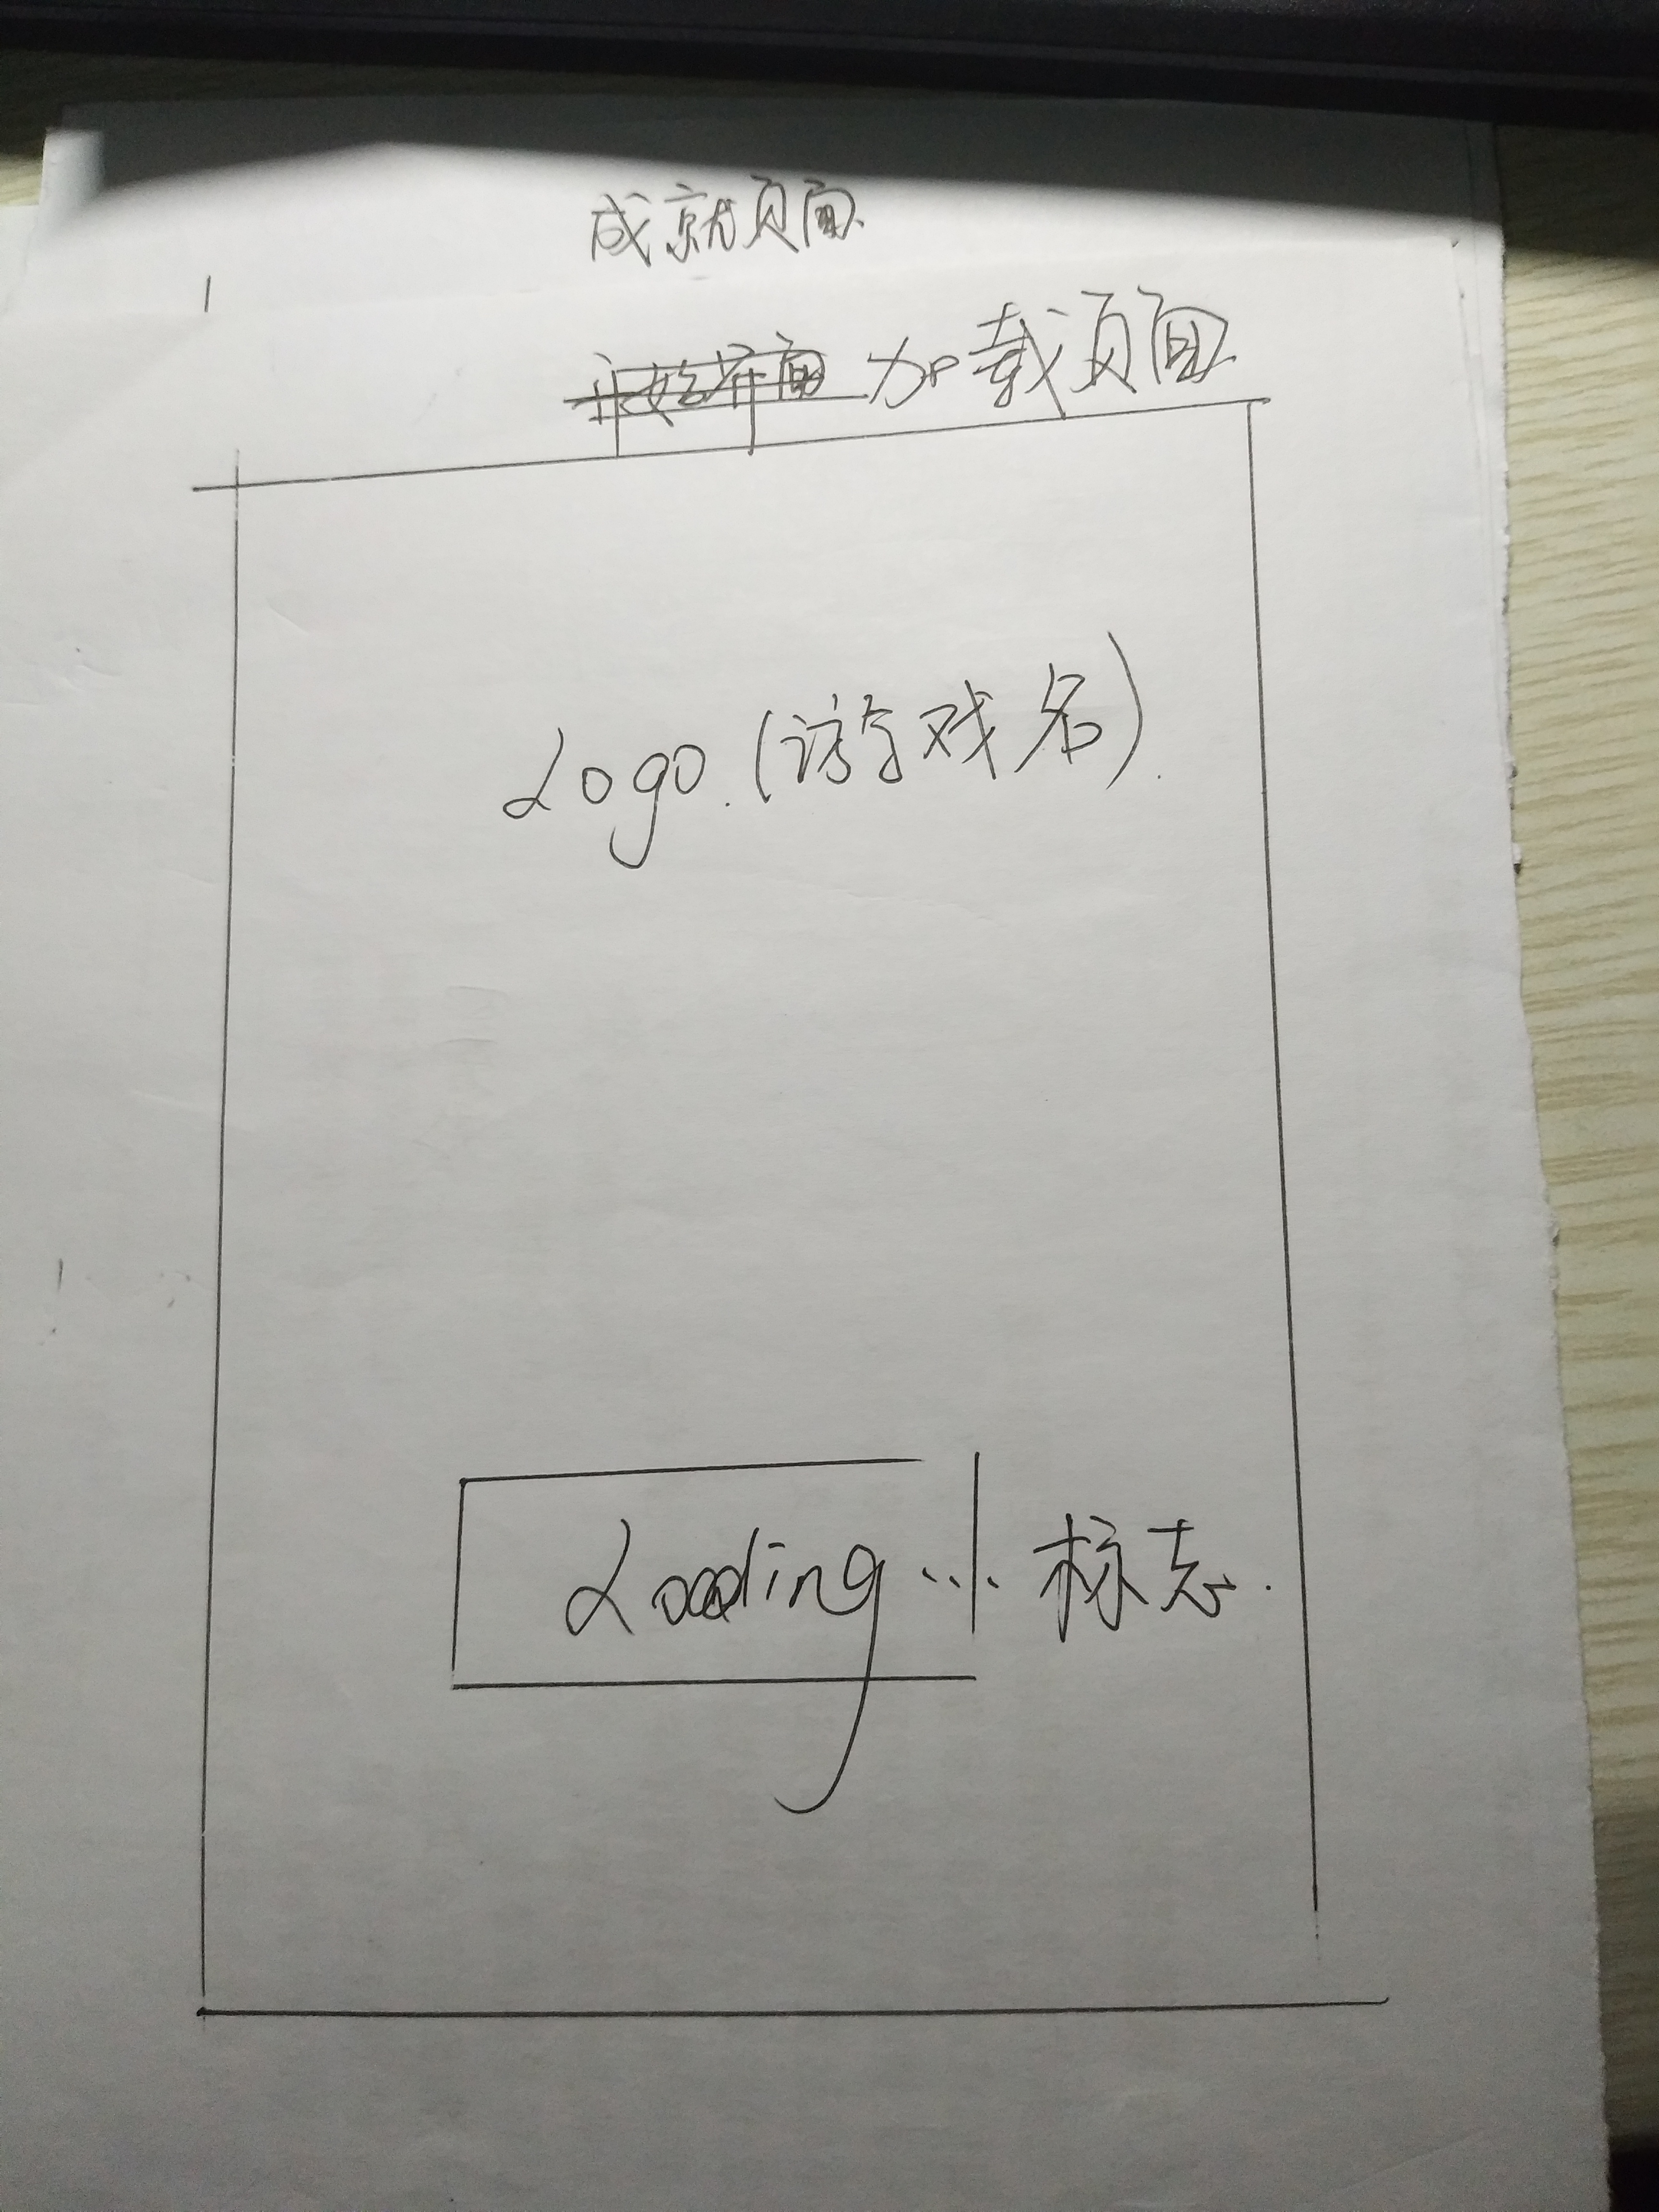 成就页面
加载页面
Logo.(游戏名).
Loading...小标志.